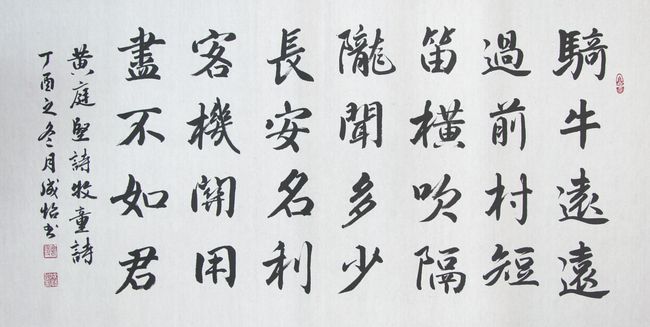 騎牛遠遠
過前村短
笛橫吹隔
隴聞多少
長安名利
客機關用
盡不如君
黄庭堅詩牧童詩
丁酉之冬月成怡书